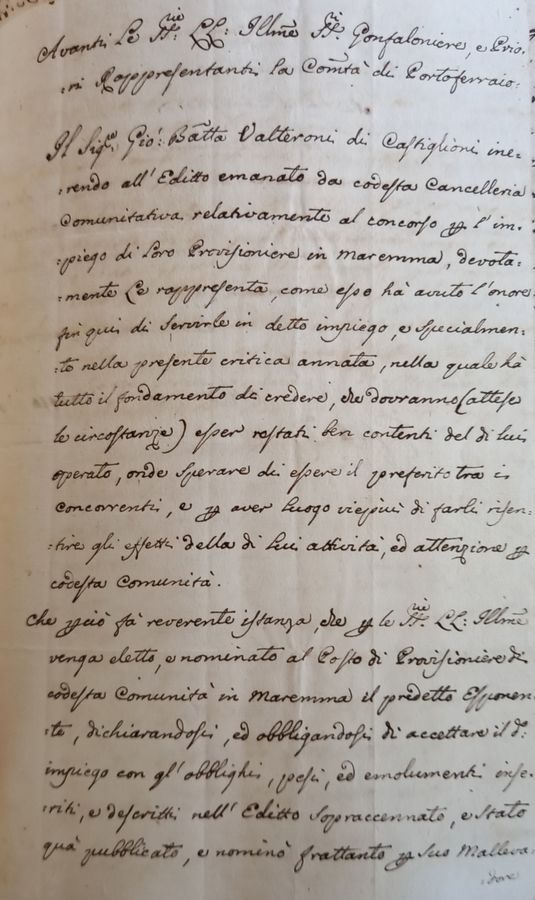 Avanti Le SS:rie LL: Illme SS:ri Gonfaloniere, e Prio:
:ri Rappresentanti la Comtà di Portoferraio:
Il Sigre Gio: Batta Valteroni di Castiglioni ine=
=rendo all' Editto emanato da codesta Cancelleria
Comunitativa relativamente al concorso p l' im=
=piego di Loro Provisioniere in Maremma, devota=
=mente Le rappresenta, come esso hà avuto l'onore
fin qui di Servirle in detto impiego, e specialmen=
=te nella presente critica annata, nella quale hà
tutto il fondamento di credere, che dovranno (attese
le circostanze) esser restati ben contenti del di lui
operato, onde sperare di essere il preferito tra i
concorrenti, e p aver luogo viepiù di farli risen=
=tire gli effetti della di Lui attività, ed attenzione p
codesta Comunità.
Che pciò fà reverente istanza, che p le SS:rie LL: Illme
venga eletto, e nominato al Posto di Provisioniere di
codesta Comunità in Maremma il predetto Esponen=
=te, dichiarandosi, ed obbligandosi di accettare il d:
impiego con gl' obblighi, pesi, ed emolumenti inse=
=riti, e descritti nell' Editto sopraccennato, e stato
quà pubblicato, e nominò frattanto p Suo Malleva=
=dore